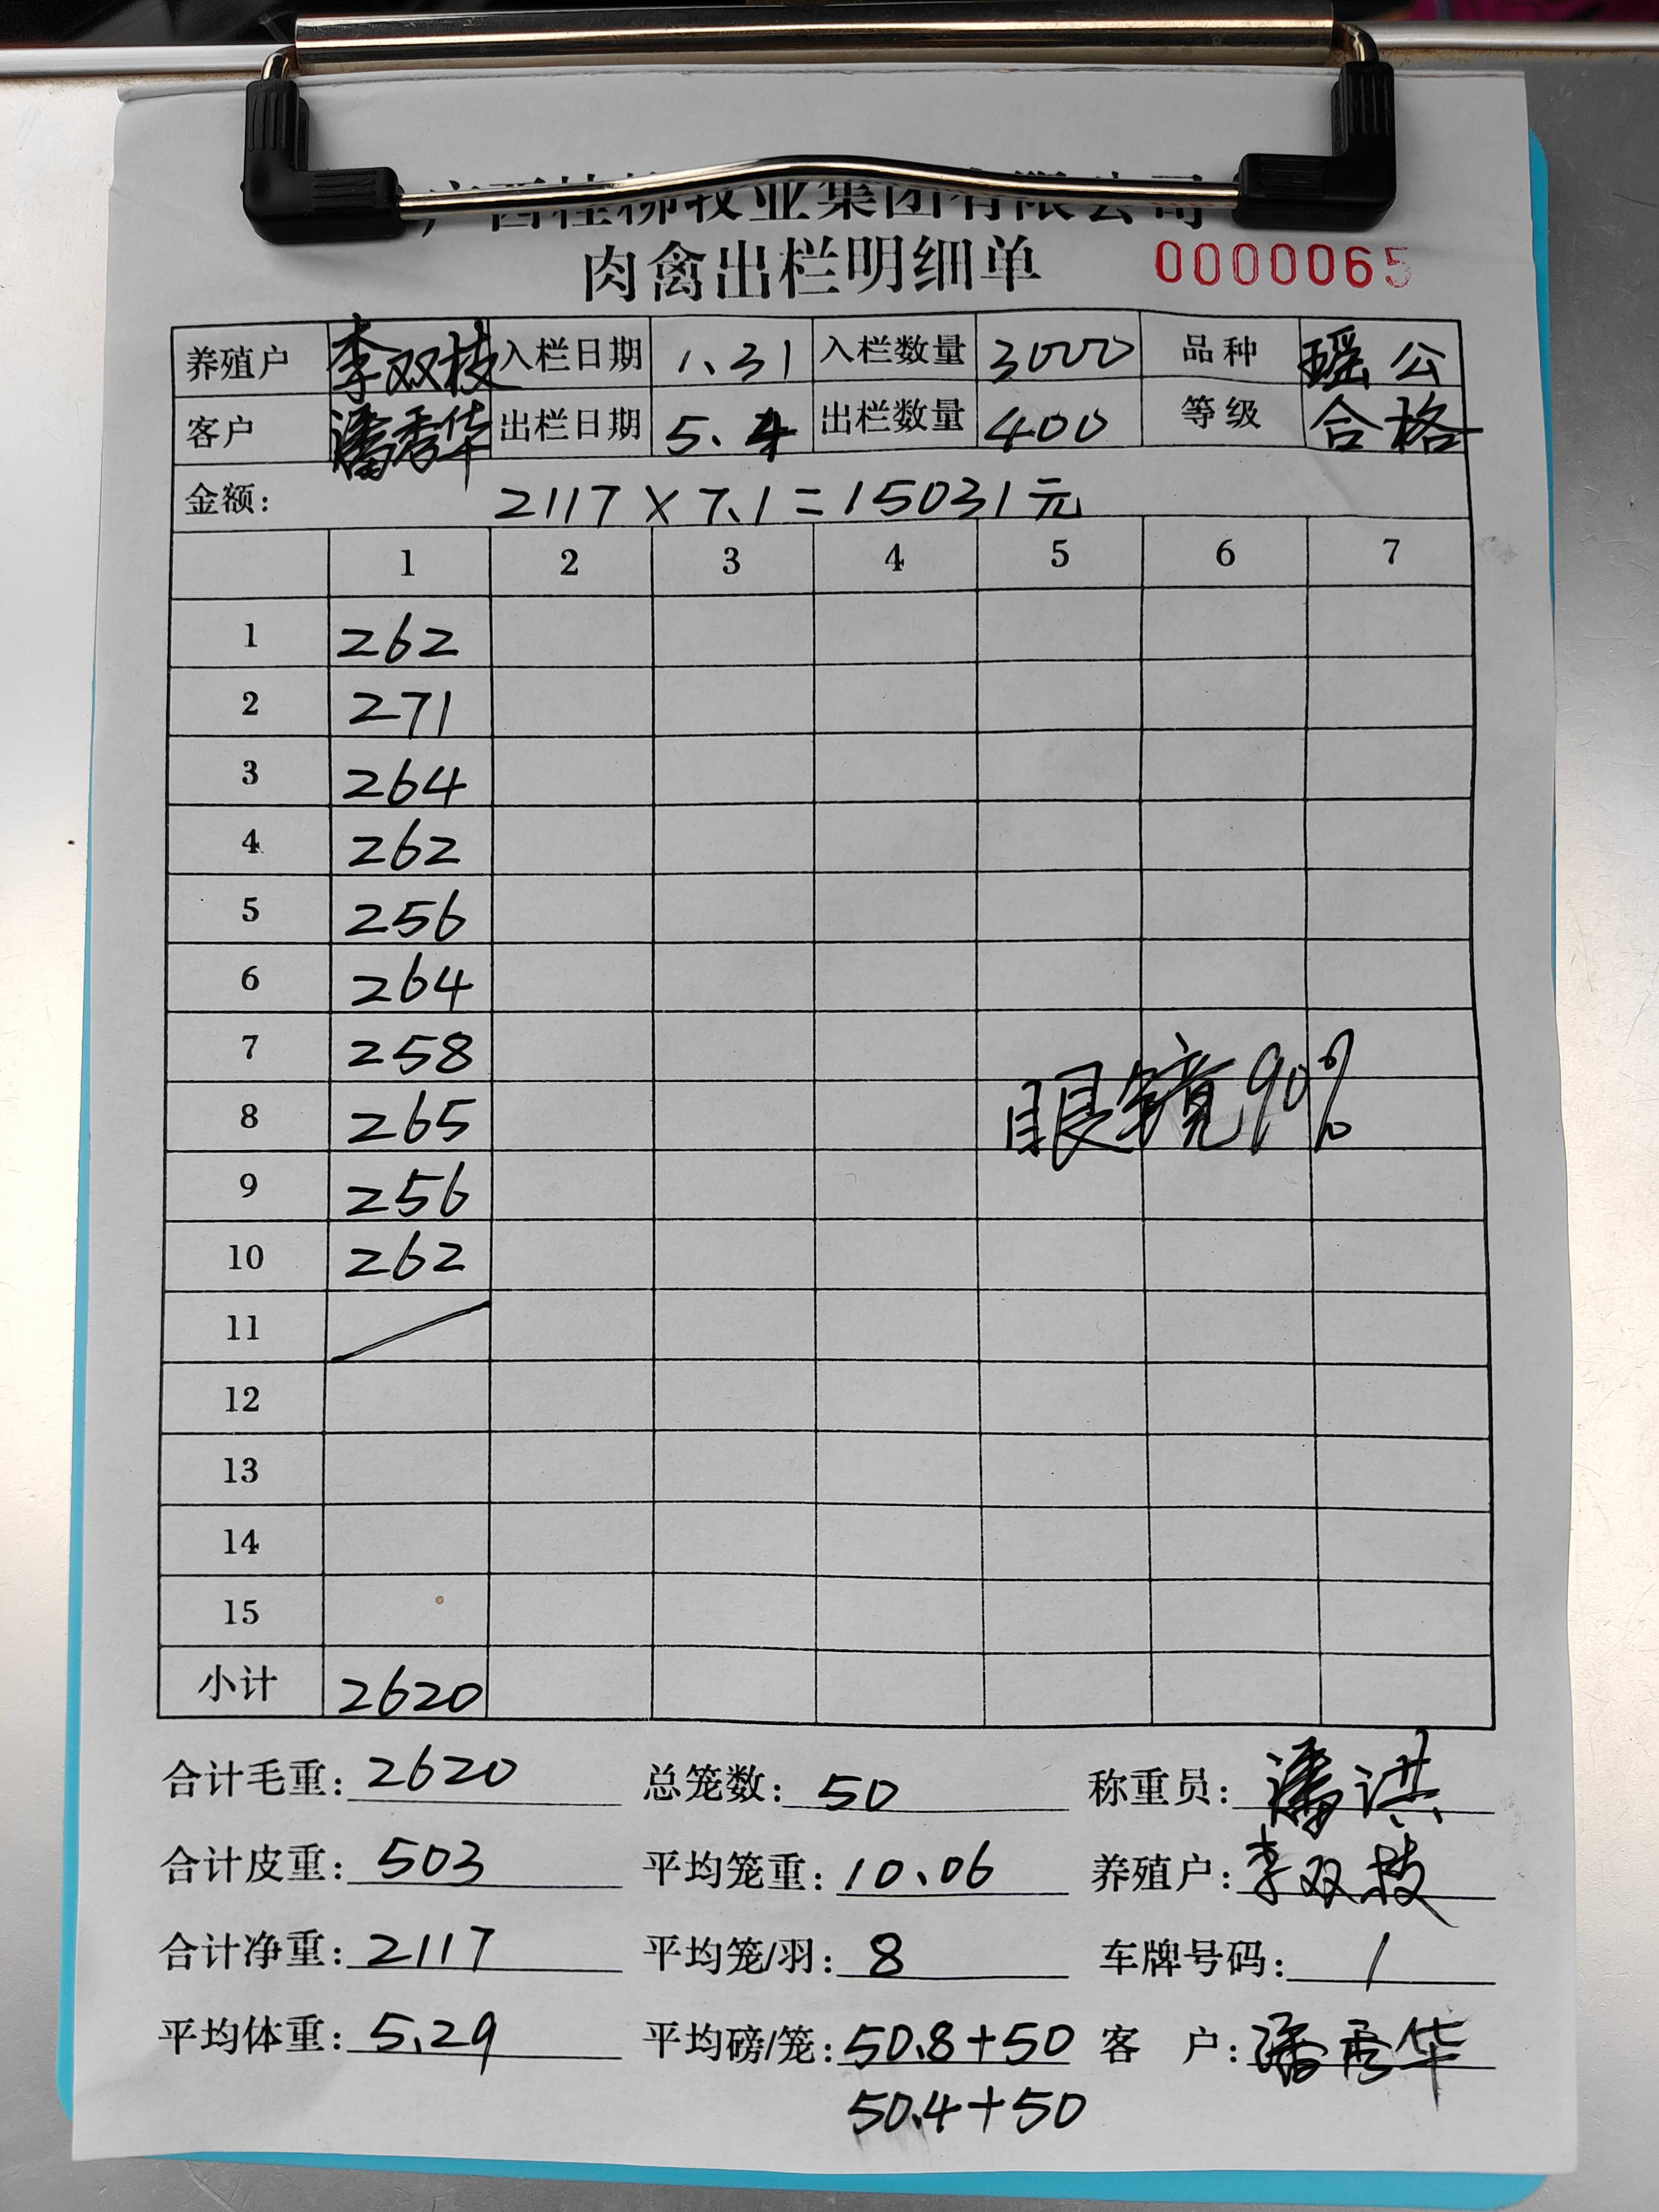 广西桂柳牧业集团有限公司
肉禽出栏明细单 0000065
养殖户 李双枝 入栏日期 1.31 入栏数量 3000 品种 瑶公
客户 潘秀华 出栏日期 5.4 出栏数量 400 等级 合格
金额: 2117×7.1=15031元
1 2 3 4 5 6 7
1 262
2 271
3 264
4 262
5 256
6 264
7 258
8 265 眼镜90%
9 256
10 262
11
12
13
14
15
小计 2620
合计毛重: 2620 总笼数: 50 称重员: 潘洪
合计皮重: 503 平均笼重: 10.06 养殖户: 李双枝
合计净重: 2117 平均笼/羽: 8 车牌号码: /
平均体重: 5.29 平均磅/笼: 50.8+50 客 户: 潘秀华
50.4+50